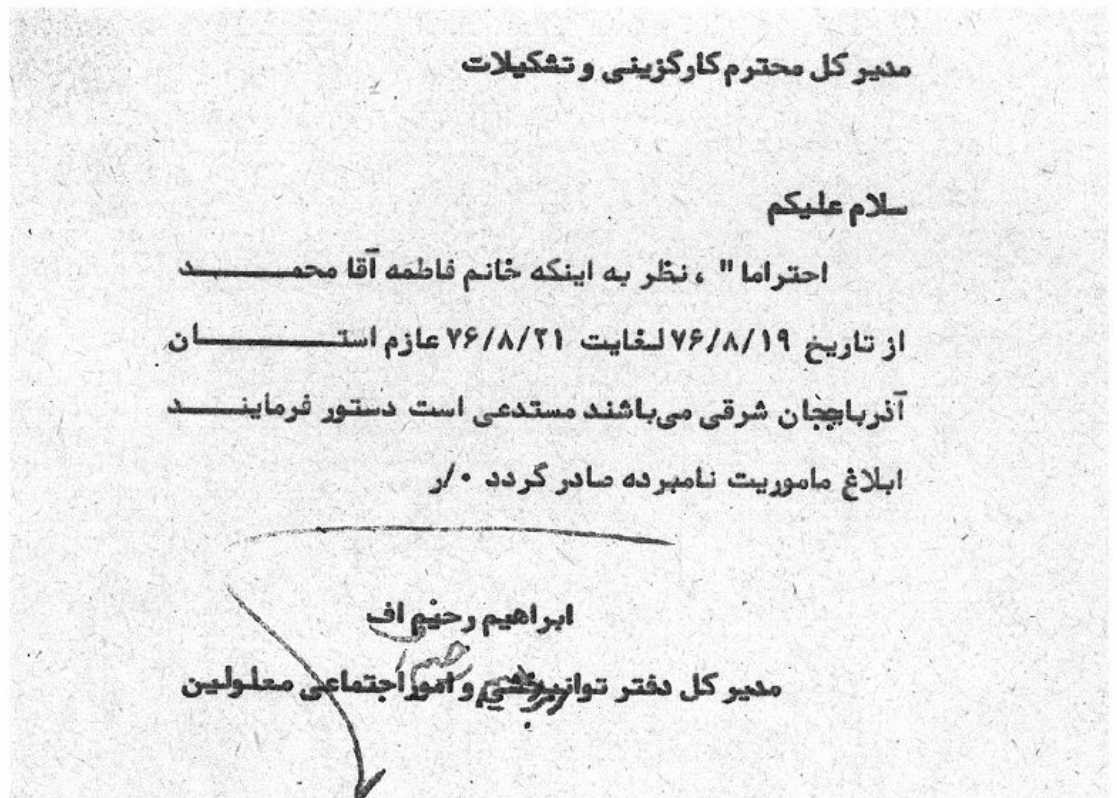 مدیر کل محترم کارگزینی و تشکیلات
سلام علیکم
احتراما " ، نظر به اینکه خانم فاطمه آقا محمــــــد
از تاریخ ۷۶/۸/۱۹ لغایت ۷۶/۸/۲۱ عازم استــــــان
آذربایجان شرقی می‌باشند مستدعی است دستور فرماینــــــد
ابلاغ ماموریت نامبرده صادر گردد ۰/ر
ابراهیم رحیم اف
مدیر کل دفتر توانبخشی و امور اجتماعی معلولین